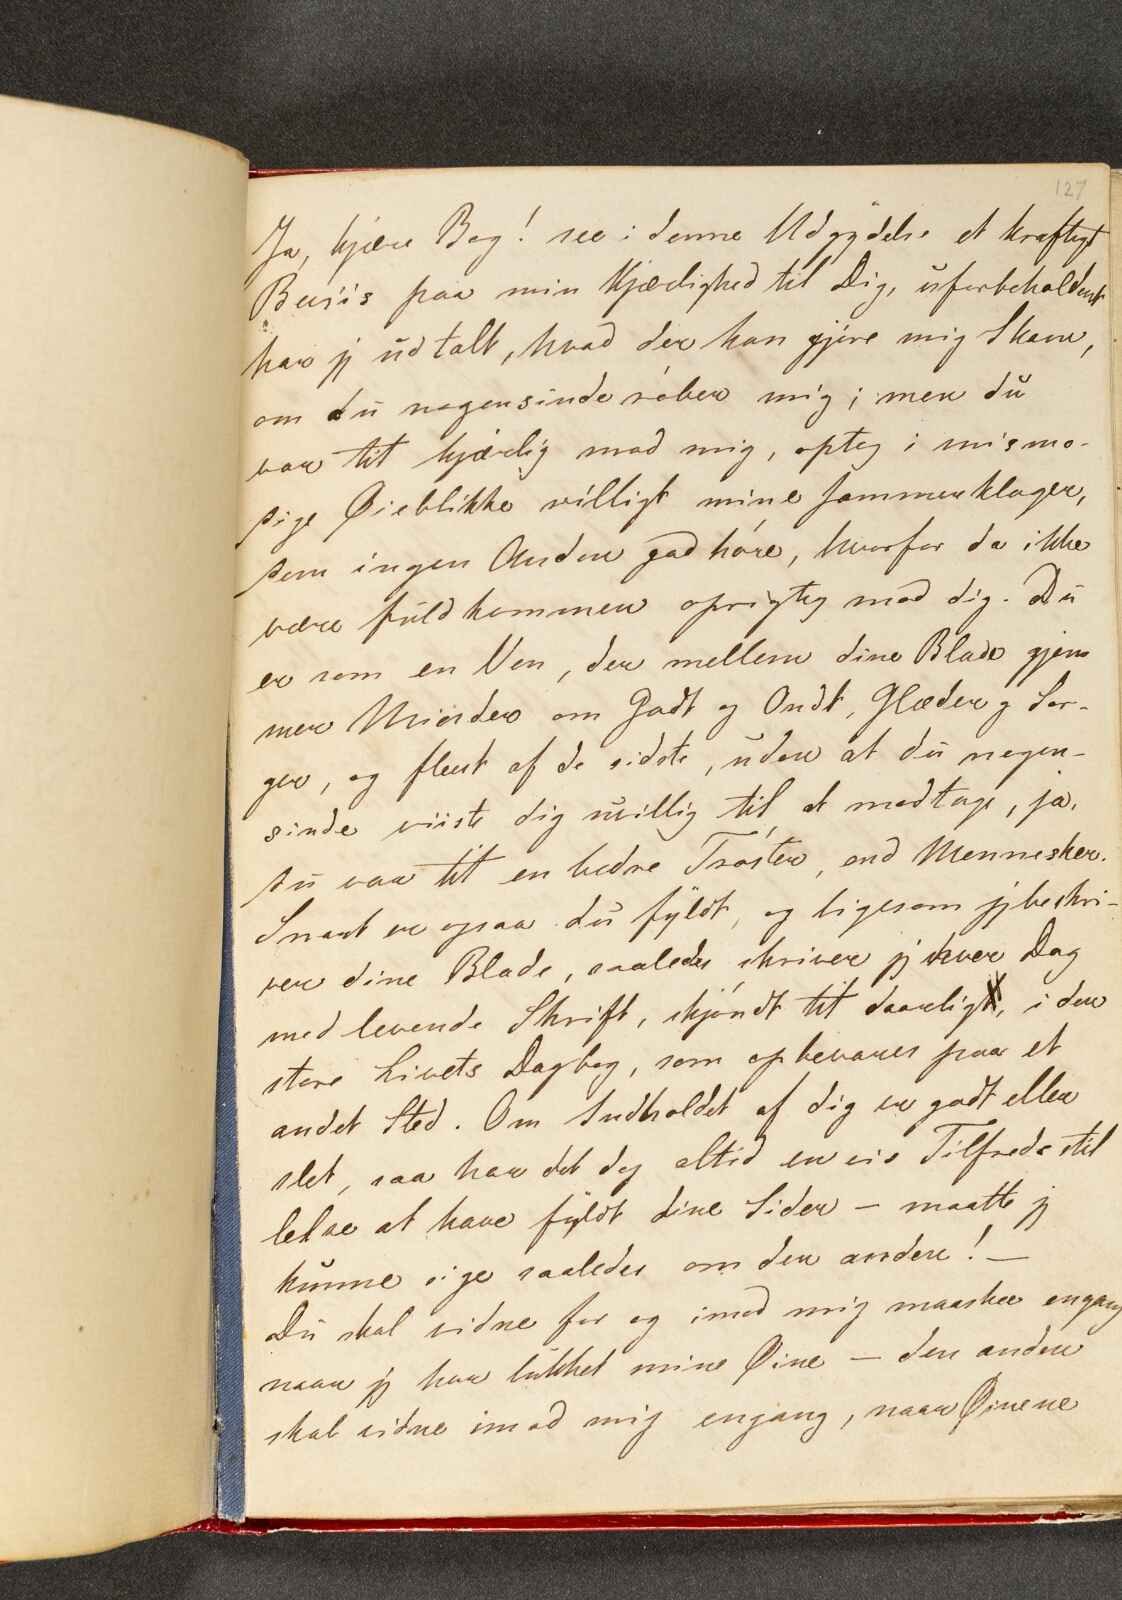 127
Ja, kjære Bog! see i denne Udgydelse et kraftigt
Beviis paa min Kjærlighed til Dig, uforbeholdent
har jeg udtalt, hvad der kan gjöre mig Skam,
om du nogensinde röber mig; men du
var tit kjærlig mod mig, optog i mismo-
dige Øieblikke villigt mine Jammerklager,
som ingen Anden gad höre, hvorfor da ikke
være fuldkommen oprigtig mod dig. Du
er som en Ven, der mellem dine Blade gjem
mer Minder om Godt og Ondt, Glæder og Sor-
ger, og fleest af de sidste, uden at du nogen-
sinde viiste dig uvillig til at modtage, ja,
du var tit en bedre Tröster, end Mennesker.
Snart er ogsaa du fyldt, og ligesom jeg beskri-
ver dine Blade, saaledes skriver jeg hver Dag
med levende Skrift, skjöndt tit daarligt, i den
store Livets Dagbog, som opbevares paa et
andet Sted. Om Indholdet af dig er godt eller
slet, saa har det dog altid en vis Tilfredsstil
lelse at have fyldt dine Sider — maatte jeg
kunne sige saaledes om den anden! —
Du skal vidne for og imod mig maaskee engang
naar jeg har lukket mine Øine — den anden
skal vidne imod mig engang, naar Øinene